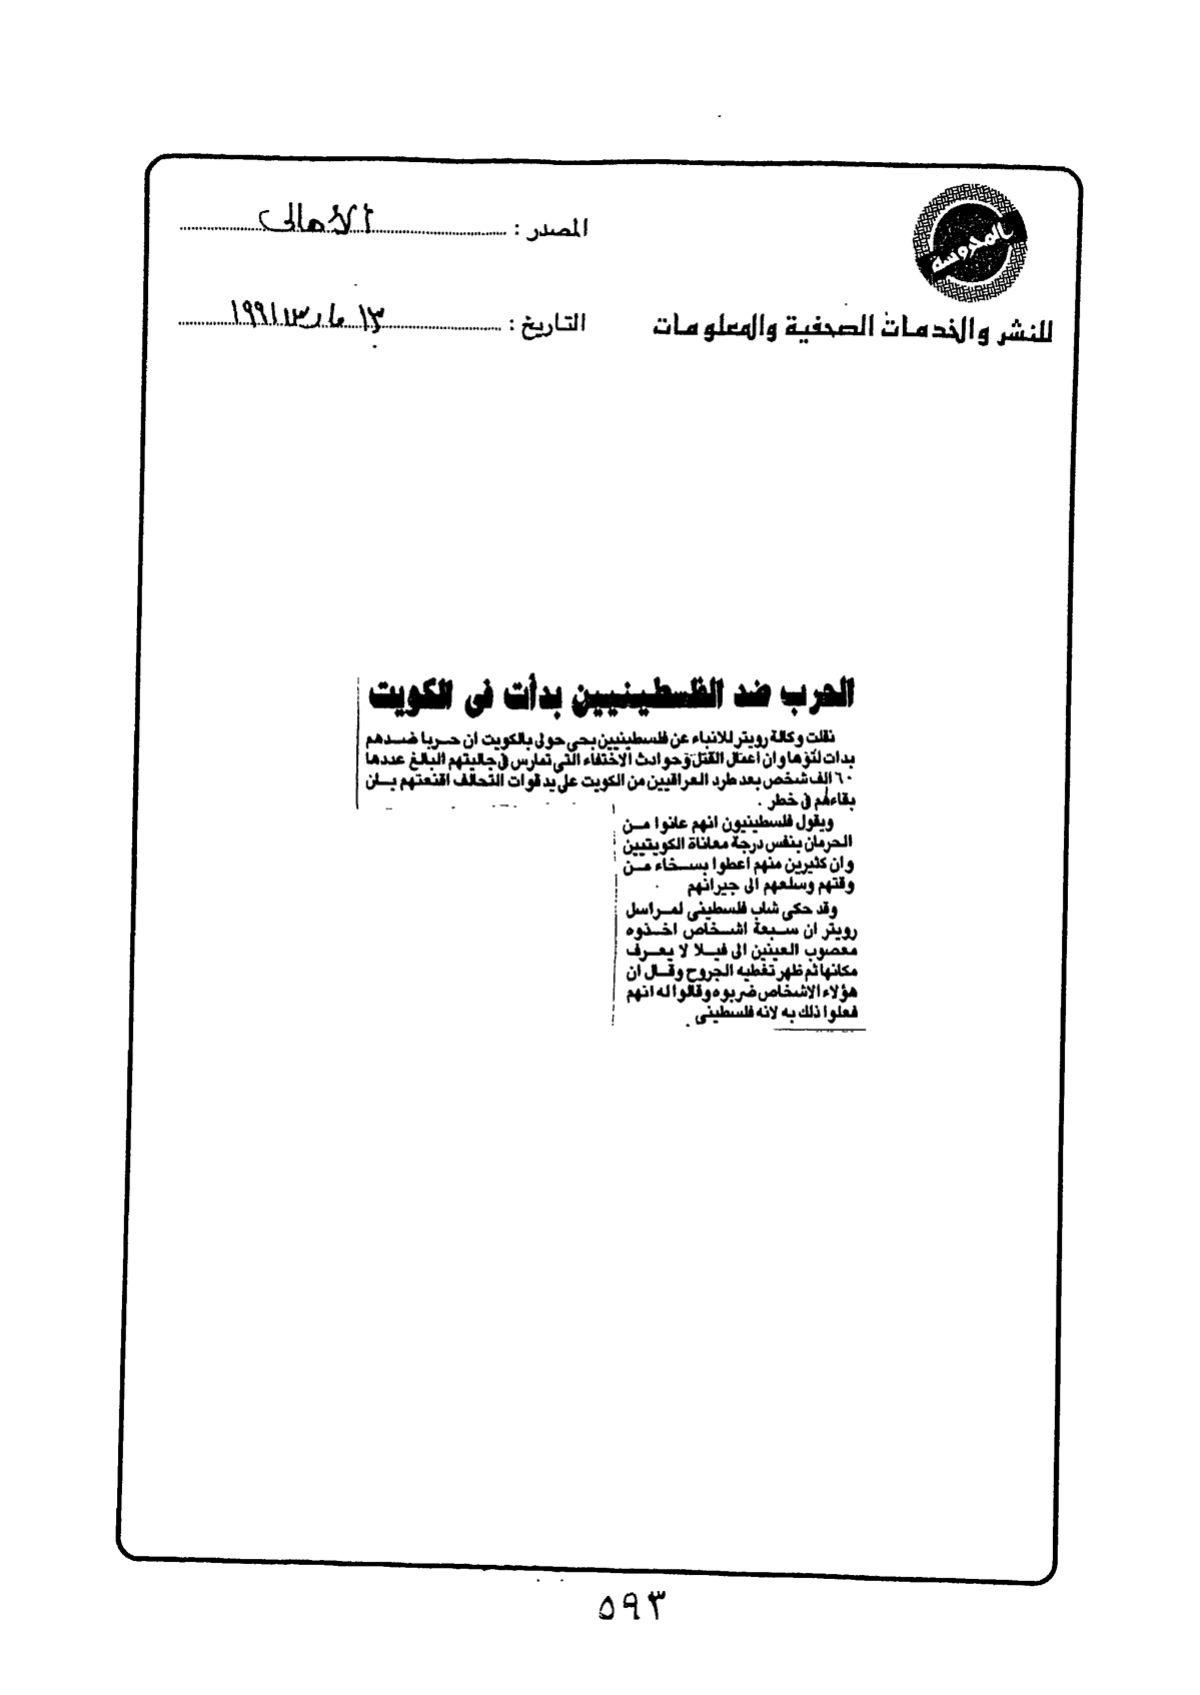 المحروسة
للنشر والخدمات الصحفية والمعلومات
المصدر : الأهالى
التاريخ : ١٣ مارس ١٩٩١
الحرب ضد الفلسطينيين بدأت فى الكويت
نقلت وكالة رويتر للانباء عن فلسطينيين بحى حولى بالكويت ان حربا ضدهم
بدات لتوها وان اعمال القتل وحوادث الاختفاء التى تمارس فى جاليتهم البالغ عددها
٦٠ الف شخص بعد طرد العراقيين من الكويت على يد قوات التحالف اقنعتهم بان
بقاءهم فى خطر .
ويقول فلسطينيون انهم عانوا من
الحرمان بنفس درجة معاناة الكويتيين
وان كثيرين منهم اعطوا بسخاء من
وقتهم وسلعهم الى جيرانهم
وقد حكى شاب فلسطينى لمراسل
رويتر ان سبعة اشخاص اخذوه
معصوب العينين الى فيلا لا يعرف
مكانها ثم ظهر تغطيه الجروح وقال ان
هؤلاء الاشخاص ضربوه وقالوا له انهم
فعلوا ذلك به لانه فلسطينى .
٥٩٣